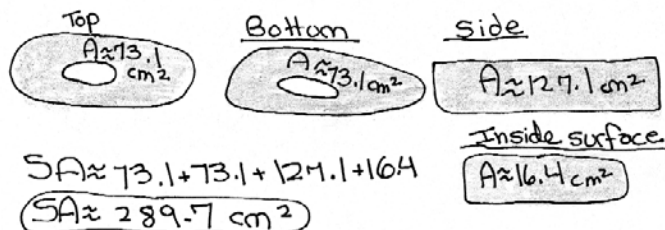 Top
A≈73.1
cm²
Bottom
A≈73.1cm²
Side
A≈127.1 cm²
Inside surface
A≈16.4 cm²
SA≈ 73.1+73.1+127.1+16.4
SA≈ 289.7 cm²